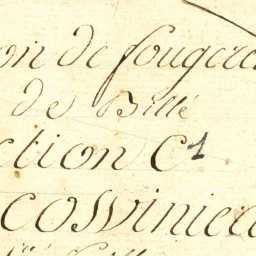 on de fougere
de Billé
ction C1
cosvinier